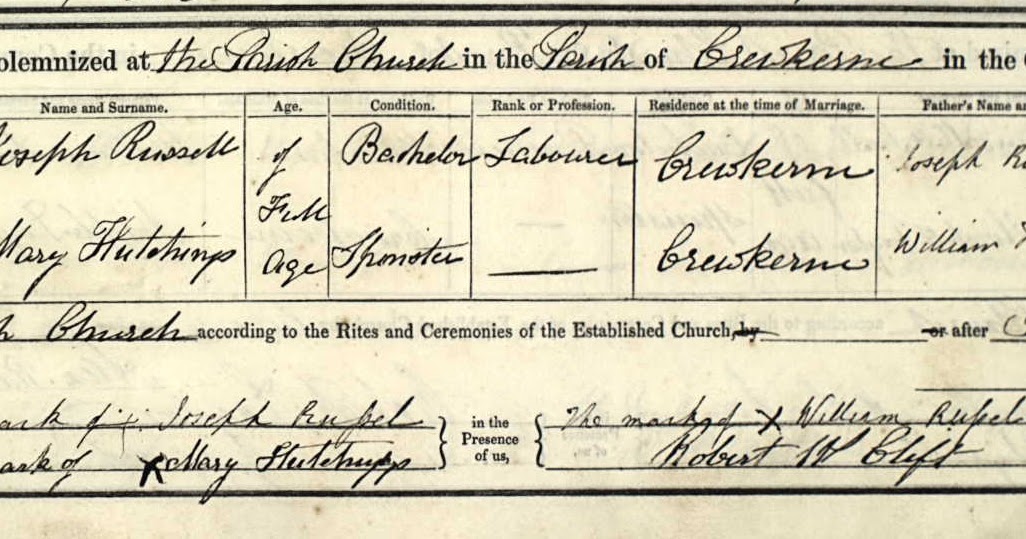 olemnized at the Parish Church in the Parish of Crewkerne in the
Name and Surname. Age. Condition. Rank or Profession. Residence at the time of Marriage. Father's Name a
Joseph Russell of Bachelor Labourer Crewkerne Joseph Ru
Full
Mary Hutchings Age Spinster — Crewkerne William
h Church according to the Rites and Ceremonies of the Established Church, by or after
ark of + Joseph Rußel in the Presence of us, The mark of X William Rußel
ark of X Mary Hutchings Robert W Clift